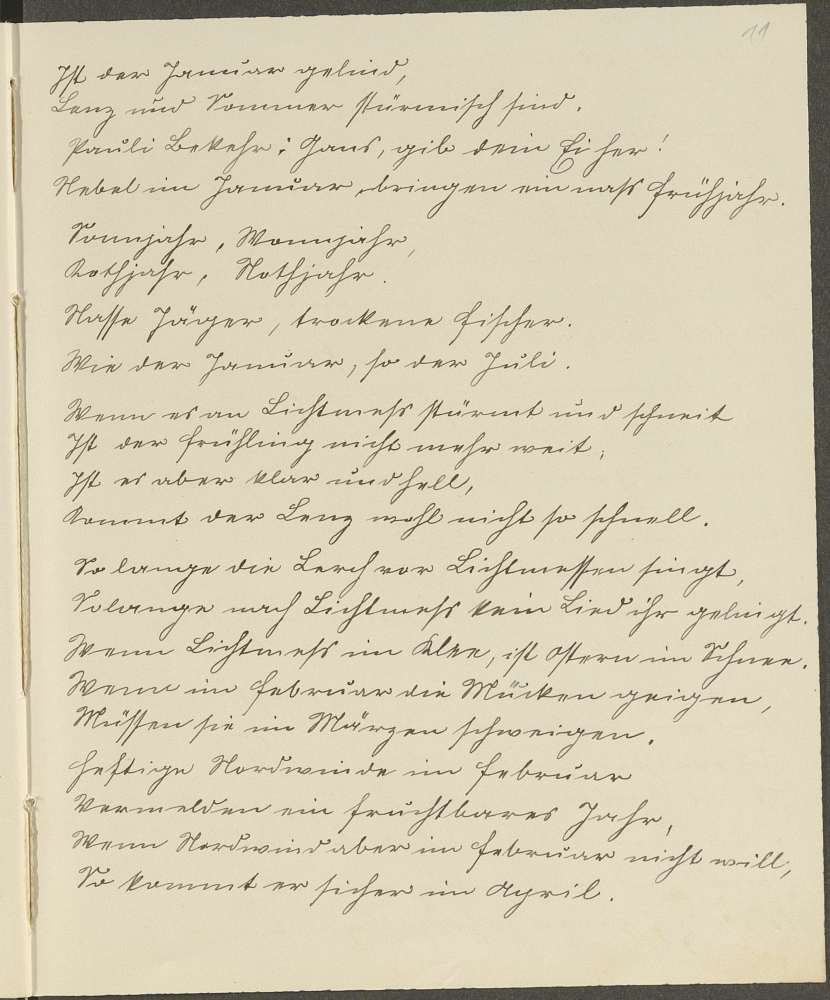 11
Ist der Januar gelind,
Lenz und Sommer stürmisch sind.
Pauli Bekehr: Gans, gib dein Ei her!
Nebel im Januar, bringen ein nass Frühjahr.
Sonnjahr, Wonnjahr,
Kothjahr, Nothjahr.
Nasse Jäger, trockene Fischer.
Wie der Januar, so der Juli.
Wenn es an Lichtmess stürmt und schneit
Ist der Frühling nicht mehr weit;
Ist es aber klar und hell,
Kommt der Lenz wohl nicht so schnell.
So lange die Lerch vor Lichtmessen singt,
Solange nach Lichtmess kein Lied ihr gelingt.
Wenn Lichtmess im Klee, ist Ostern im Schnee.
Wenn im Februar die Mücken geigen,
Müssen sie im Märzen schweigen.
Heftige Nordwinde im Februar
Vermelden ein fruchtbares Jahr,
Wenn Nordwind aber im Februar nicht will,
So kommt er sicher im April.